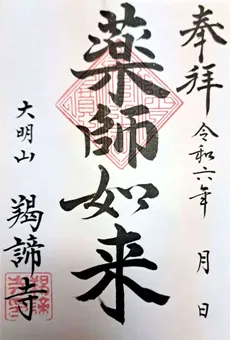 奉拝 令和六年 月 日
薬師如来
大明山
羯諦寺